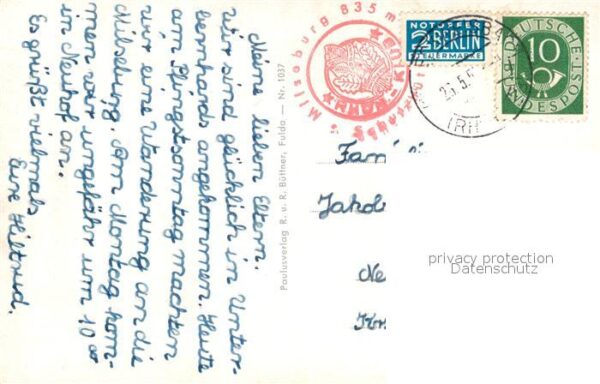 Meine lieben Eltern.
Wir sind glücklich in Unter-
bernhards angekommen. Heute
am Pfingstsonntag machten
wir eine Wanderung an die
Milseburg. Am Montag kom-
men wir ungefähr um 10 00
in Neuhof an.
Es grüßt vielmals
Eure Hiltrud.
Paulusverlag R. u. R. Büttner, Fulda — Nr. 1037
Milseburg 835 m
NOTOPFER
2 BERLIN
STEUERMARKE
DEUTSCHE
10
BUNDESPOST
Fami
Jakob
Ne
privacy protection
Datenschutz